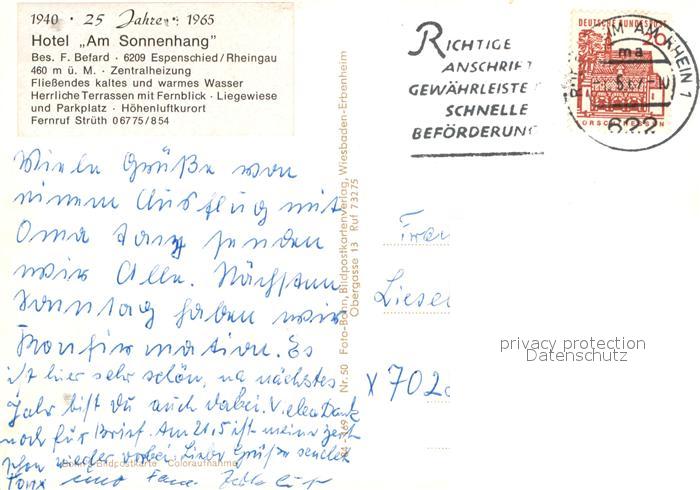 1940 · 25 Jahre · 1965
Hotel „Am Sonnenhang"
Bes. F. Befard · 6209 Espenschied/Rheingau
460 m ü. M. · Zentralheizung
Fließendes kaltes und warmes Wasser
Herrliche Terrassen mit Fernblick · Liegewiese
und Parkplatz · Höhenluftkurort
Fernruf Strüth 06775/854
RICHTIGE
ANSCHRIFT
GEWÄHRLEISTET
SCHNELLE
BEFÖRDERUNG
DEUTSCHE BUNDESPOST
20
LORSCH HESSEN
IM AM RHEIN 1
ma
622
Viele Grüße von
einem Ausflug mit
Oma senden
wir Alle. Nächsten
Sonntag haben wir
Konfirmation. Es
ist hier sehr schön, na nächstes
Jahr bist du auch dabei. Vielen Dank
noch für Brief. Am 21.5 ist meine Zeit
schon wieder vorbei. Liebe Grüße sendet
und Fam.
Frau
Liesel
X 702
Nr. 50 Foto-Bohn, Bildpostkartenverlag, Wiesbaden-Erbenheim
Obergasse 13 Ruf 73275
Bildpostkarte Coloraufnahme
privacy protection
Datenschutz